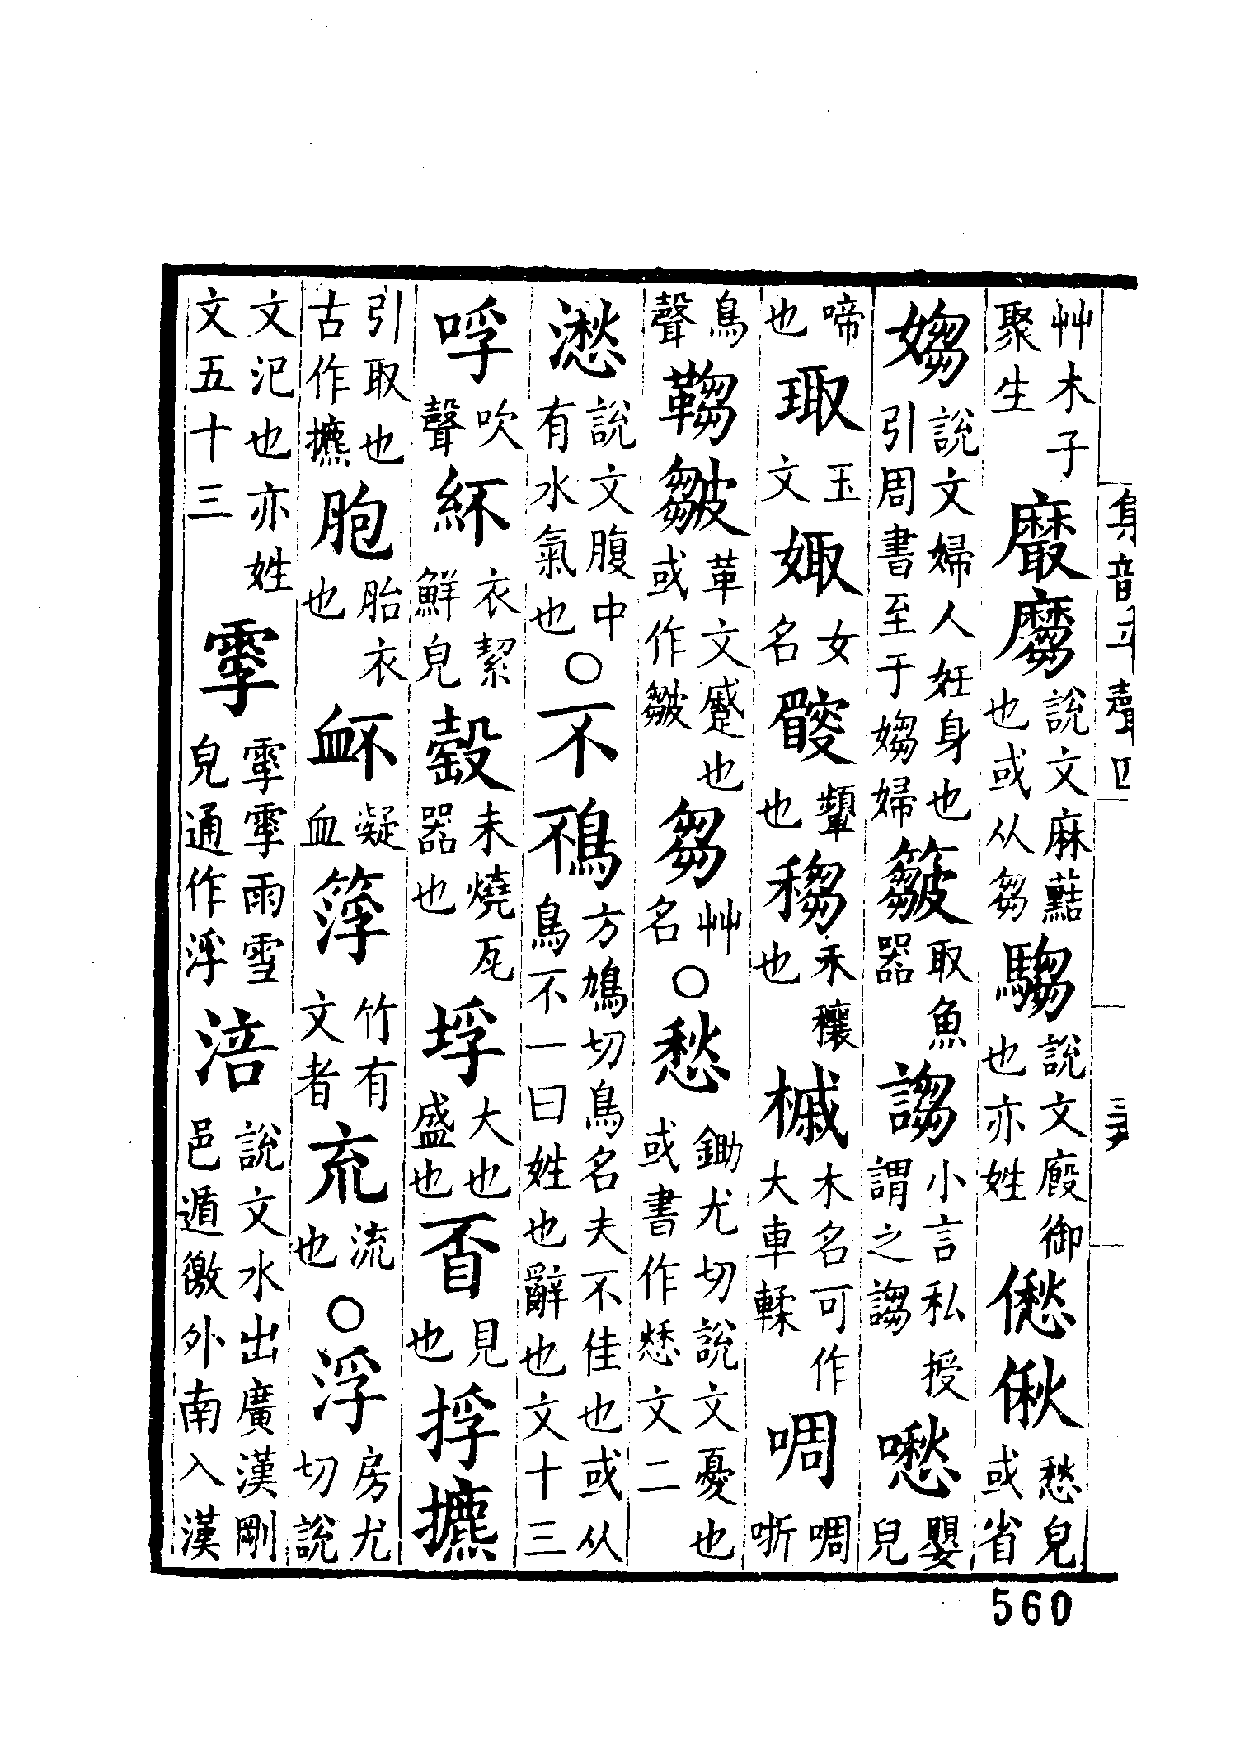 艸木子聚生黀說文麻藍也或从芻騶說文廄御也亦姓僽偢愁皃或省
媰說文婦人妊身也引周書至于媰婦取魚器謅小言私授謂之謅嬰皃
啼也玉文娵女名顰也禾穰也槭木名可作大車輮啁啁哳
鳥聲皺革文蹙也或作皺芻艸名○愁鋤尤切說文憂也或書作文二
說文腹中有水氣也○不鴀方鳩切鳥名夫不隹也或从鳥不一曰姓也辭也文十三
哹吹聲紑衣絜鮮皃未燒瓦器也垺大也盛也見也捊
引取也古作胞胎衣也衃凝血竹有文者㐬流也○浮房尤切說
文氾也亦姓文五十三雨雪皃通作浮涪說文水出廣漢剛邑遁徼外南入漢
集韻平聲四
560